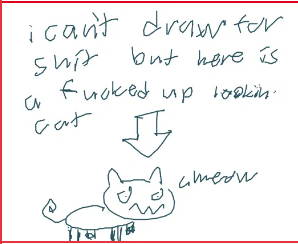 i can't draw for
shit but here is
a fucked up lookin.
cat
meow